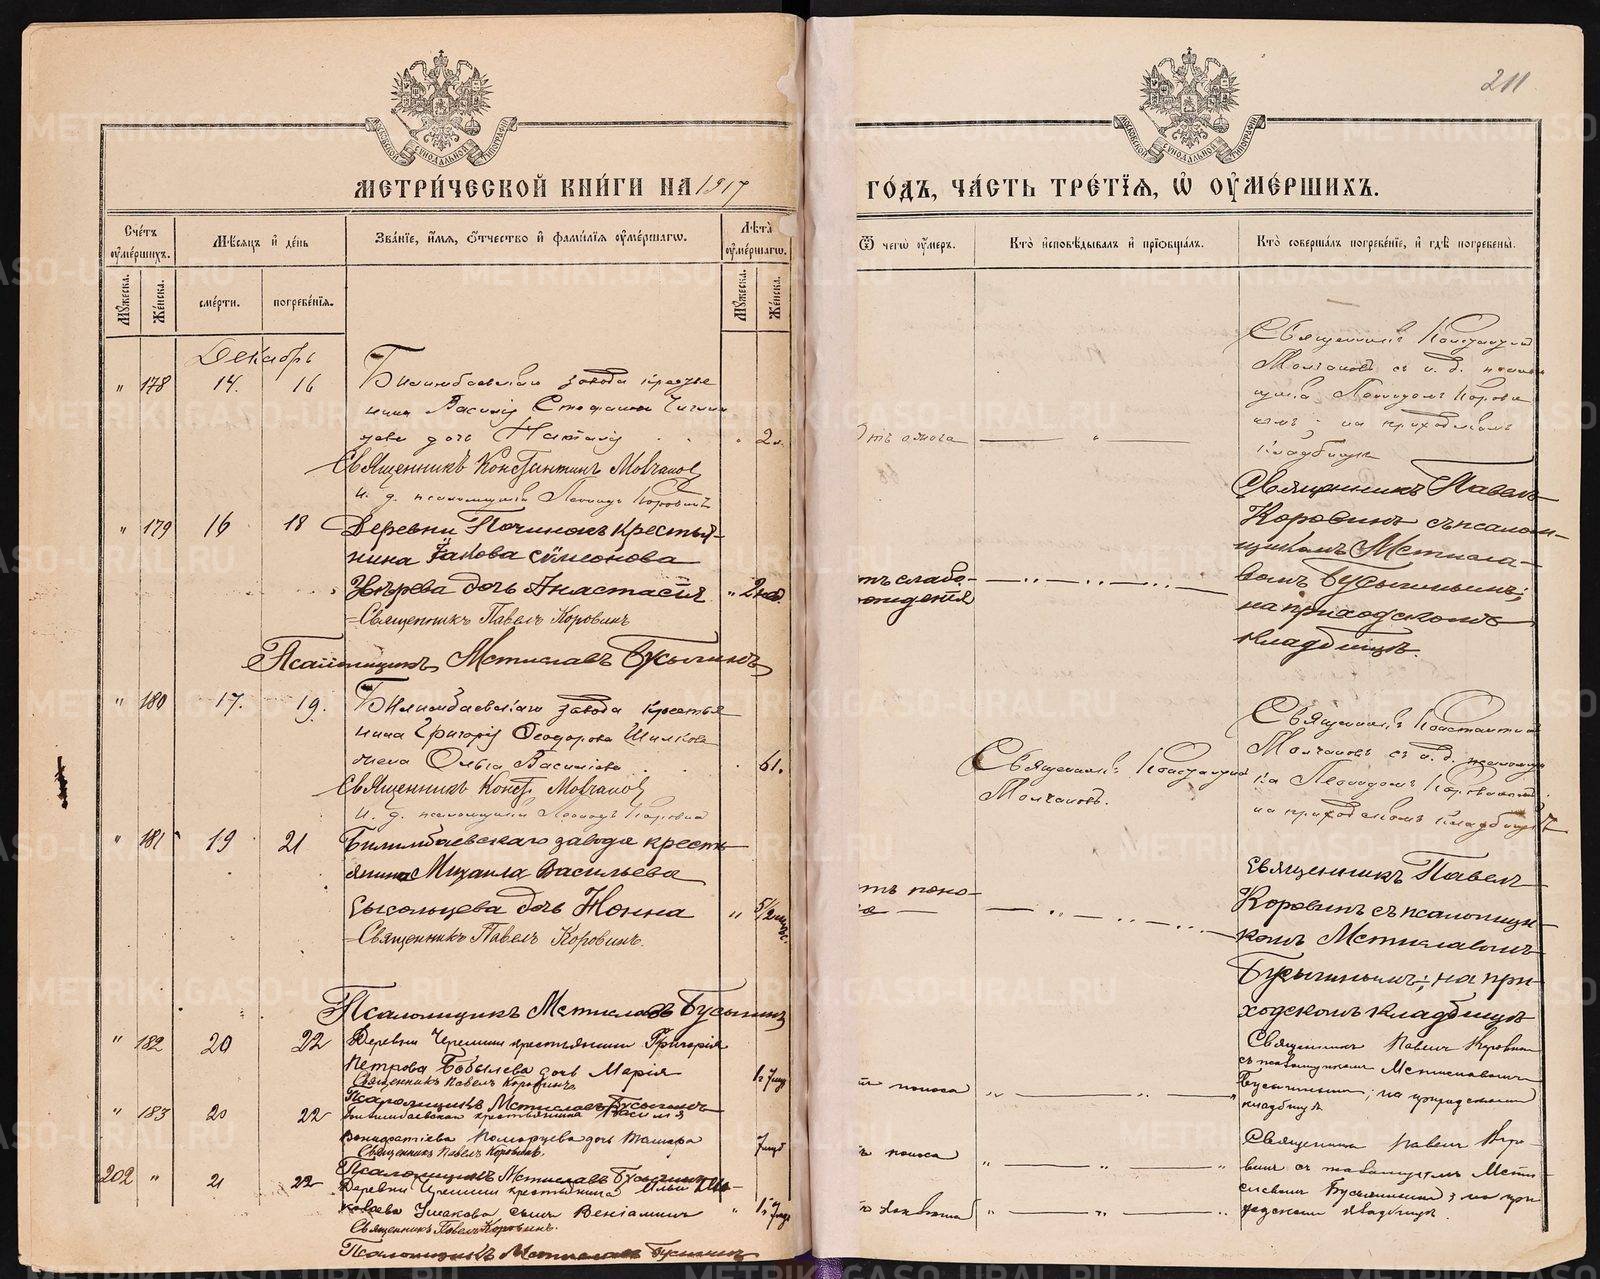 211
МОСКОВСКОЙ СѴНОДАЛЬНОЙ ТИПОГРАФІИ
МОСКОВСКОЙ СѴНОДАЛЬНОЙ ТИПОГРАФІИ
МЕТРИ́ЧЕСКОЙ КНИ́ГИ НА 1917
ГО́ДЪ, ЧА́СТЬ ТРЕ́ТІЯ, Ѡ҆ ОУ҆МЕ́РШИХЪ.
Сче́тъ оу҆ме́ршихъ.
Мѣ́сяцъ и҆ де́нь
Зва́ніе, и҆́мя, ѻ҆́тчество и҆ фами́лія оу҆ме́ршагѡ.
Лѣ́та оу҆ме́ршагѡ.
Ѿ чегѡ̀ оу҆́меръ.
Кто̀ и҆сповѣ́дывалъ и҆ прїѡбща́лъ.
Кто̀ соверша́лъ погребе́ніе, и҆ гдѣ̀ погребены̀.
Мꙋ́жеска.
Же́нска.
сме́рти.
погребе́нія.
Мꙋ́жеска.
Же́нска.
Декабрь
" 178 14. 16
Билимбаевскаго завода крестья
нина Василія Стефанова
дочь Наталія 2
Священникъ Константинъ Молчановъ
И. д. псаломщика Леонидъ Коровинъ
Священникъ Константинъ
Молчановъ съ и. д. псалом
щика Леонидомъ Корови
нымъ; на приходскомъ
кладбищѣ
" 179 16 18
Деревни Починокъ крестья-
нина Іакова Сѵмеонова
Звѣрева дочь Анастасія " 2 нед.
=Священникъ Павелъ Коровинъ
Псаломщикъ Мстиславъ Бусыгинъ
слабо-
рожденія
Священникъ Павелъ
Коровинъ съ псалом-
щикомъ Мстисла-
вомъ Бусыгинымъ;
на приходскомъ
кладбищѣ.
" 180 17. 19.
Билимбаевскаго завода крестья
нина Григорія Ѳеодорова
жена Ольга Василіева 61.
Священникъ Конст. Молчановъ
И. д. псаломщика Леонидъ Коровинъ
Священникъ Константинъ
Молчановъ.
Священникъ Константинъ
Молчановъ съ и. д. псаломщи
ка Леонидомъ Коровинымъ
на приходскомъ кладбищѣ
" 181 19 21
Билимбаевскаго завода кресть
янина Михаила Васильева
Сысольцева дочь Нонна " 5½ мѣс.
=Священникъ Павелъ Коровинъ.
Псаломщикъ Мстиславъ Бусыгинъ
отъ поно-
са
Священникъ Павелъ
Коровинъ съ псаломщи-
комъ Мстиславомъ
Бусыгинымъ; на при-
ходскомъ кладбищѣ
" 182 20 22
Деревни Черемши крестьянина Григорія
Петрова Бобылева дочь Марія
Священникъ Павелъ Коровинъ.
Псаломщикъ Мстиславъ Бусыгинъ
поноса
Священникъ Павелъ Коровинъ
съ псаломщикомъ Мстиславомъ
Бусыгинымъ; на приходскомъ
кладбищѣ
" 183 20 22
Билимбаевскаго крестьянина Василія
Вонифатіева дочь Тамара
Священникъ Павелъ Коровинъ.
Псаломщикъ Мстиславъ Бусыгинъ
поноса
Священникъ Павелъ Коро-
винъ съ псаломщикомъ Мсти-
славомъ Бусыгинымъ; на при-
ходскомъ кладбищѣ.
202 " 21 22
Деревни Черемши крестьянина Ильи
Ушакова сынъ Веніаминъ
Священникъ Павелъ Коровинъ.
Псаломщикъ Мстиславъ Бусыгинъ
METRIKI.GASO-URAL.RU